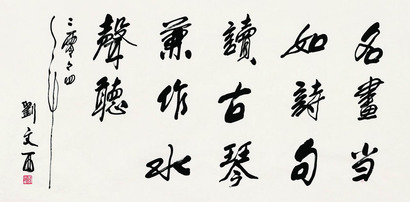 名畫当
如詩句
讀古琴
兼作水
聲聽
二零零四
劉文西